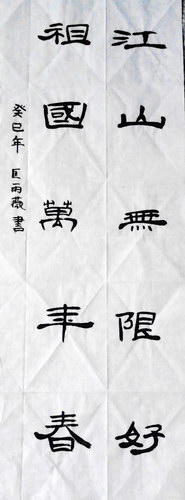 江山無限好
祖國萬年春
癸巳年 匡雨薇書